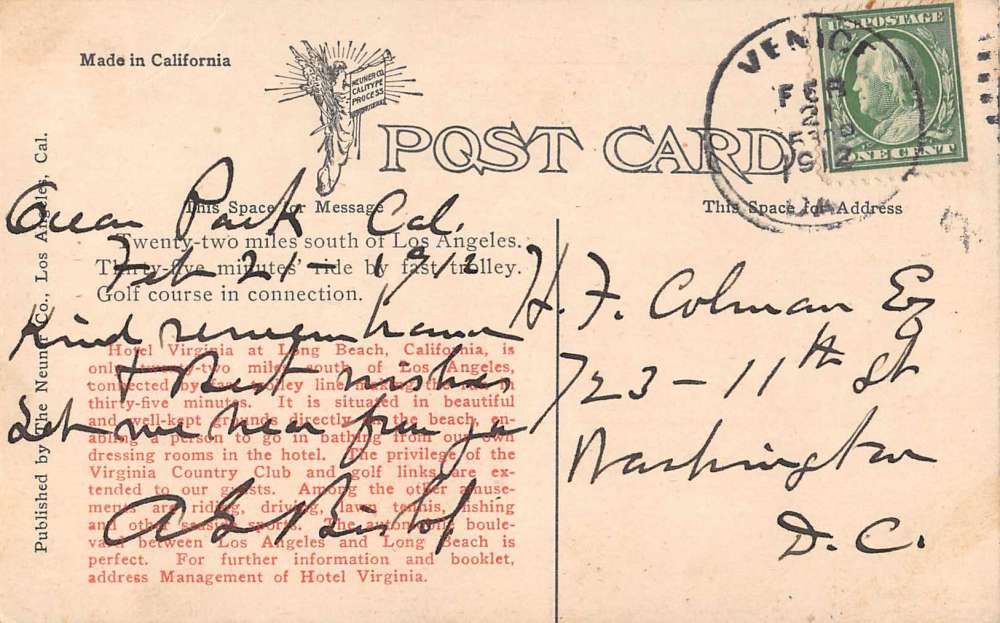 Made in California
NEUNER CO.
CALITYPE
PROCESS
POST CARD
U.S. POSTAGE
ONE CENT
VENICE
FEB
1912
Published by The Neuner Co., Los Angeles, Cal.
This Space for Message
Ocean Park Cal.
Feb 21 - 1912
Kind remembrance
& Best wishes
Let me hear from ye
Twenty-two miles south of Los Angeles.
Thirty-five minutes' ride by fast trolley.
Golf course in connection.
Hotel Virginia at Long Beach, California, is
only twenty-two miles south of Los Angeles,
connected by fast trolley line
thirty-five minutes. It is situated in beautiful
and well-kept grounds directly on the beach, en-
abling a person to go in bathing from our own
dressing rooms in the hotel. The privilege of the
Virginia Country Club and golf links are ex-
tended to our guests. Among the other amuse-
ments are riding, driving, lawn tennis, fishing
and other seaside sports. The automobile boule-
vard between Los Angeles and Long Beach is
perfect. For further information and booklet,
address Management of Hotel Virginia.
This Space for Address
H. F. Colman Esq
723 - 11th St
Washington
D.C.